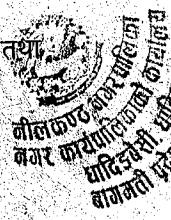 तथा
नीलकण्ठ नगरपालिका
नगर कार्यपालिकाको कार्यालय
धादिङबेसी, धादिङ
बागमती